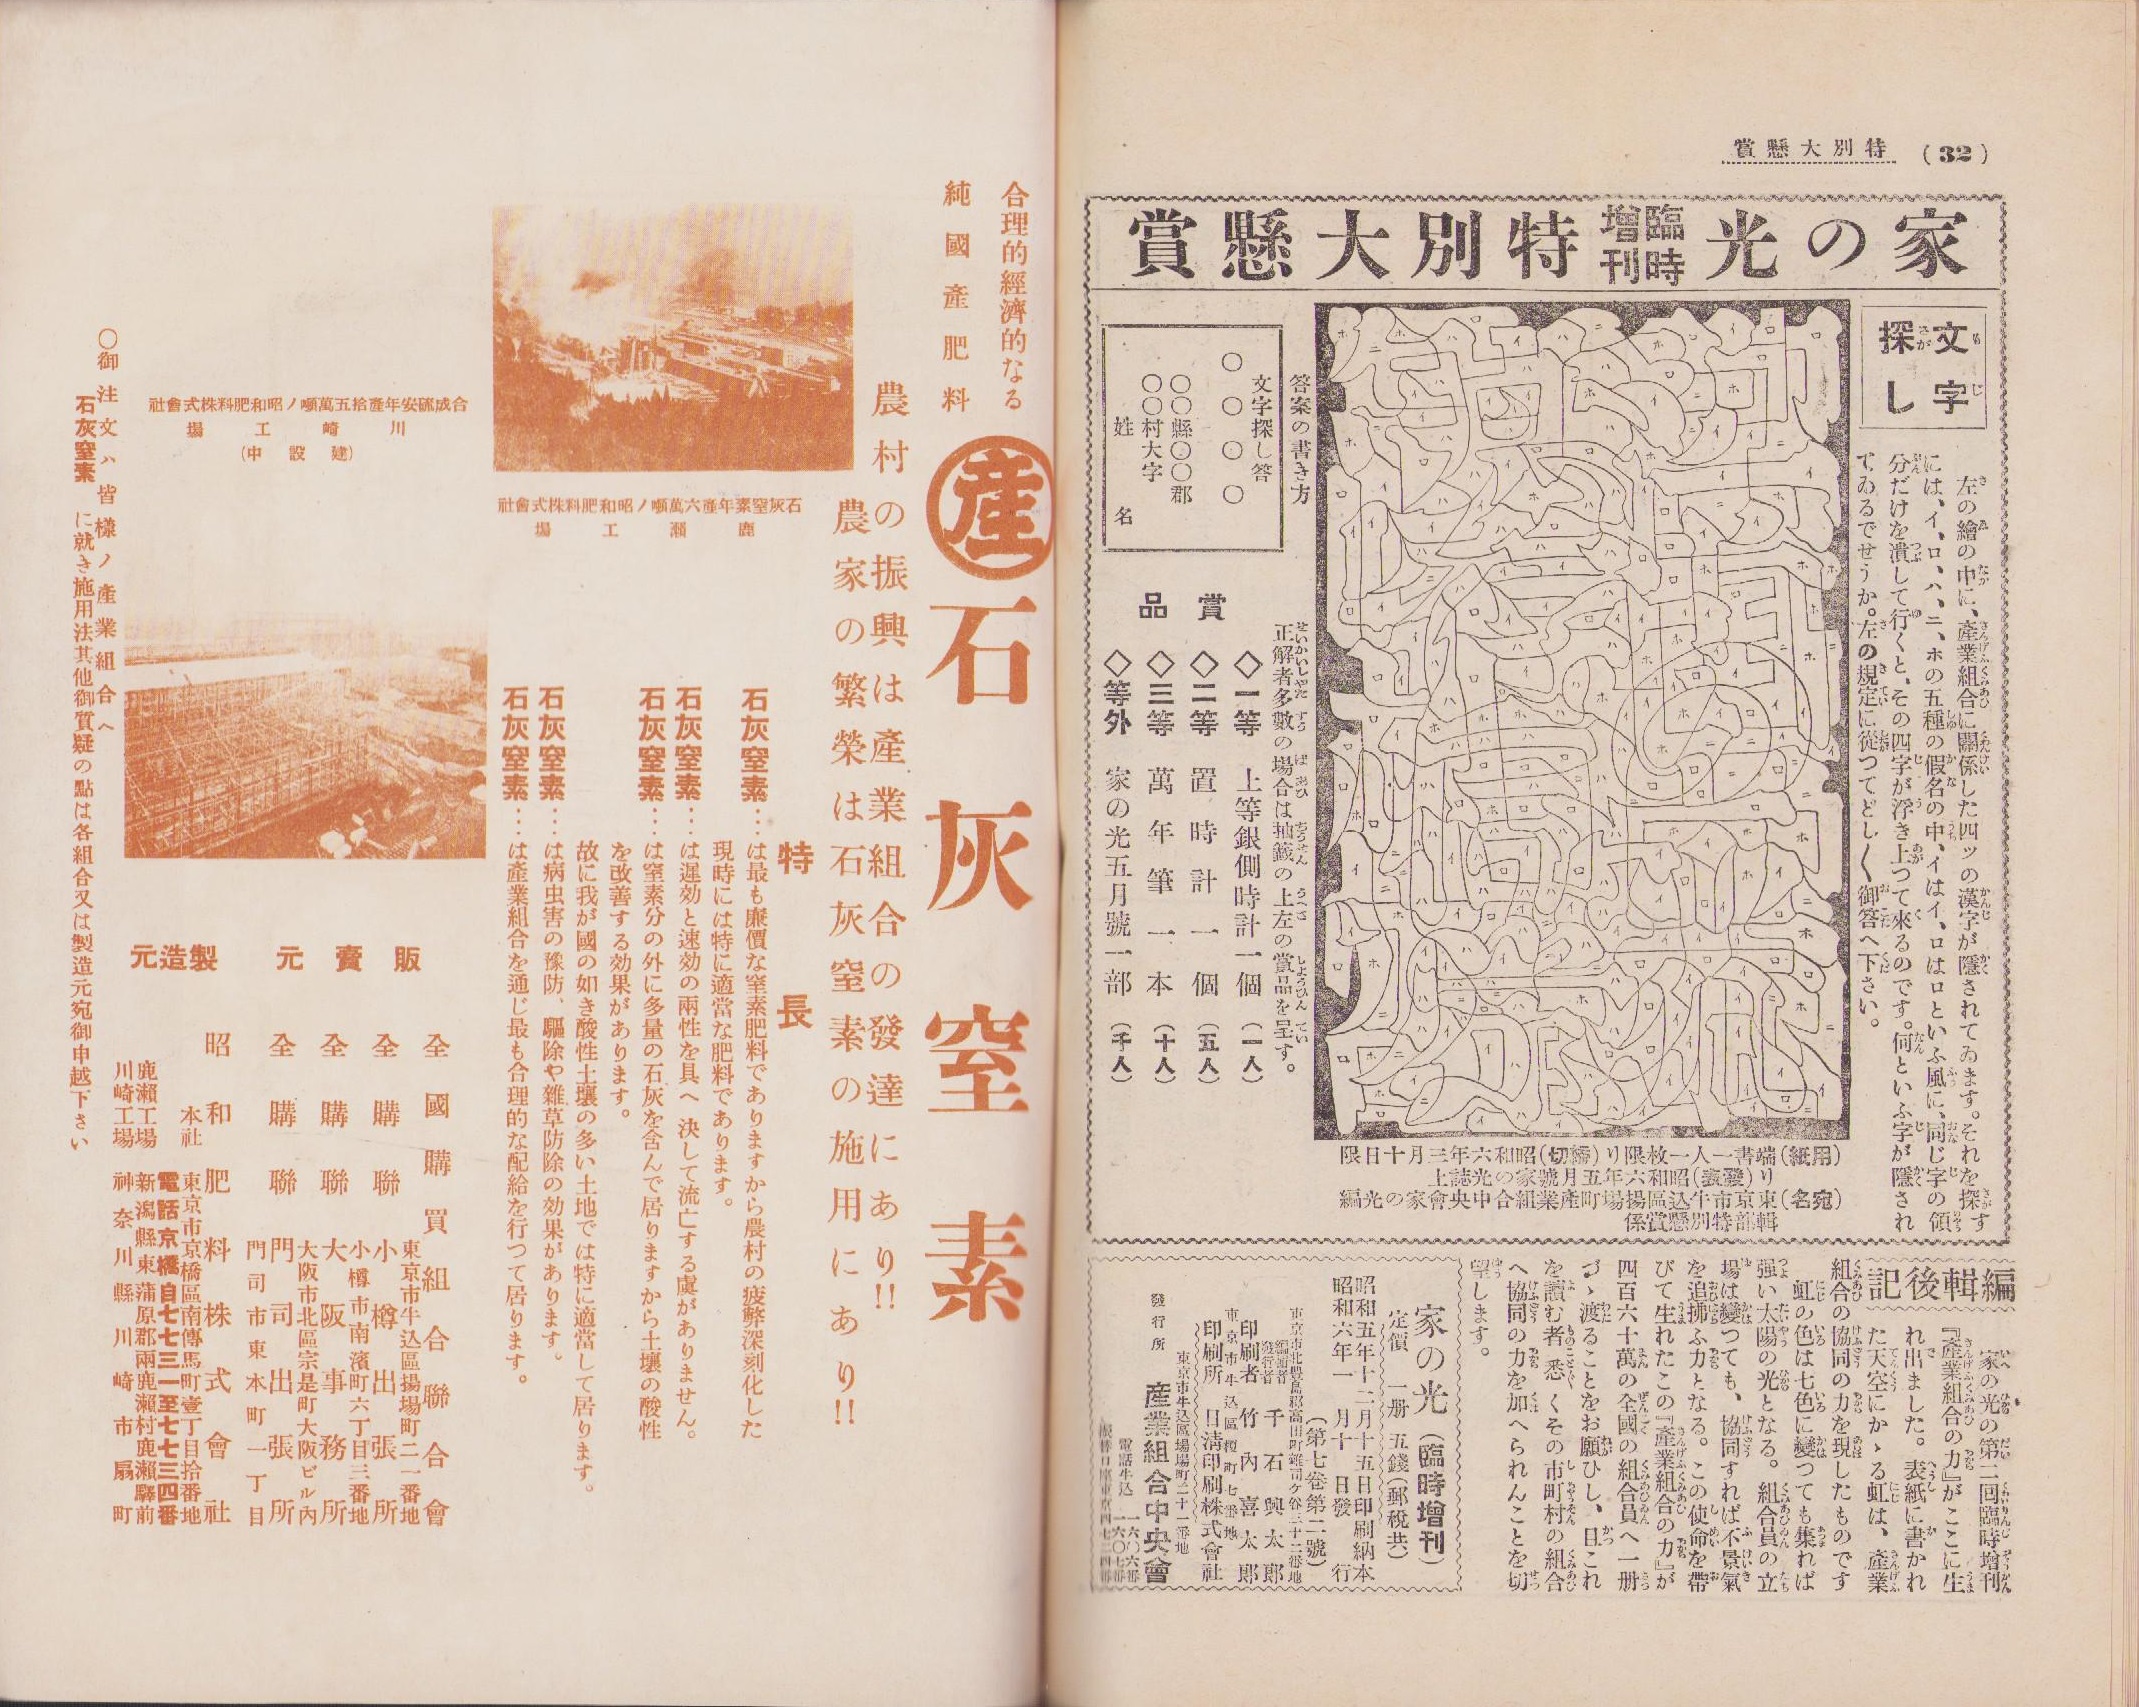 (32) 特別大懸賞
家の光 臨時増刊 特別大懸賞
文字探し
左の繪の中に、産業組合に關係した四ツの漢字が隱されてゐます。それを探す
には、イ、ロ、ハ、ニ、ホの五種の假名の中、イはイ、ロはロといふ風に、同じ字の領
分だけを潰して行くと、その四字が浮き上つて來るのです。何といふ字が隱され
てゐるでせうか。左の規定に從つてどし〱御答へ下さい。
(用紙)端書一人一枚限り(締切)昭和六年三月十日限
り(發表)昭和六年五月號家の光誌上
(宛名)東京市牛込區揚場町産業組合中央會家の光編
輯部特別懸賞係
答案の書き方
文字探し答
〇〇〇〇
〇〇縣〇〇郡
〇〇村大字
姓名
正解者多數の場合は抽籤の上左の賞品を呈す。
賞品
◇一等 上等銀側時計一個 (一人)
◇二等 置時計一個 (五人)
◇三等 萬年筆一本 (十人)
◇等外 家の光五月號一部 (千人)
編輯後記
家の光の第二回臨時增刊
『産業組合の力』がここに生
れ出ました。表紙に書かれ
た天空にかゝる虹は、産業
組合の協同の力を現したものです
虹の色は七色に變つても集れば
强い太陽の光となる。組合員の立
場は變つても、協同すれば不景氣
を追拂ふ力となる。この使命を帶
びて生れたこの『産業組合の力』が
四百六十萬の全國の組合員へ一册
づゝ渡ることをお願ひし、且これ
を讀む者悉くその市町村の組合
へ協同の力を加へられんことを切
望します。
家の光(臨時增刊)
定價 一册 五錢(郵稅共)
昭和五年十二月十五日印刷納本
昭和六年一月十日發行
(第七卷第二號)
東京市北豐島郡高田町雜司ケ谷三十二番地
編輯者
發行者 千石興太郎
印刷者 竹內喜太郎
東京市牛込區榎町七番地
印刷所 日淸印刷株式會社
東京市牛込區揚場町二十一番地
發行所 産業組合中央會
合理的經濟的なる
純國産肥料
産 石灰窒素
農村の振興は産業組合の發達にあり!!
農家の繁榮は石灰窒素の施用にあり!!
石灰窒素年産六萬噸ノ昭和肥料株式會社
鹿瀨工場
合成硫安年産拾五萬噸ノ昭和肥料株式會社
川崎工場
(建設中)
特長
石灰窒素…は最も廉價な窒素肥料でありますから農村の疲弊深刻化した
現時には特に適當な肥料であります。
石灰窒素…は遲効と速効の兩性を具へ 決して流亡する虞がありません。
石灰窒素…は窒素分の外に多量の石灰を含んで居りますから土壤の酸性
を改善する効果があります。
故に我が國の如き酸性土壤の多い土地では特に適當して居ります。
石灰窒素…は病虫害の豫防、驅除や雜草防除の効果があります。
石灰窒素…は産業組合を通じ最も合理的な配給を行つて居ります。
販賣元
全國購買組合聯合會
東京市牛込區揚場町二一番地
全購聯小樽出張所
小樽市南濱町六丁目三番地
全購聯大阪事務所
大阪市北區宗是町大阪ビル內
全購聯門司出張所
門司市東本町一丁目
製造元
昭和肥料株式會社
本社 東京市京橋區南傳馬町壹丁目拾番地
電話京橋自七七三一至七七三四番
鹿瀨工場 新潟縣東蒲原郡兩鹿瀨村鹿瀨驛前
川崎工場 神奈川縣川崎市扇町
〇御注文ハ皆樣ノ產業組合へ
石灰窒素に就き施用法其他御質疑の點は各組合又は製造元宛御申越下さい